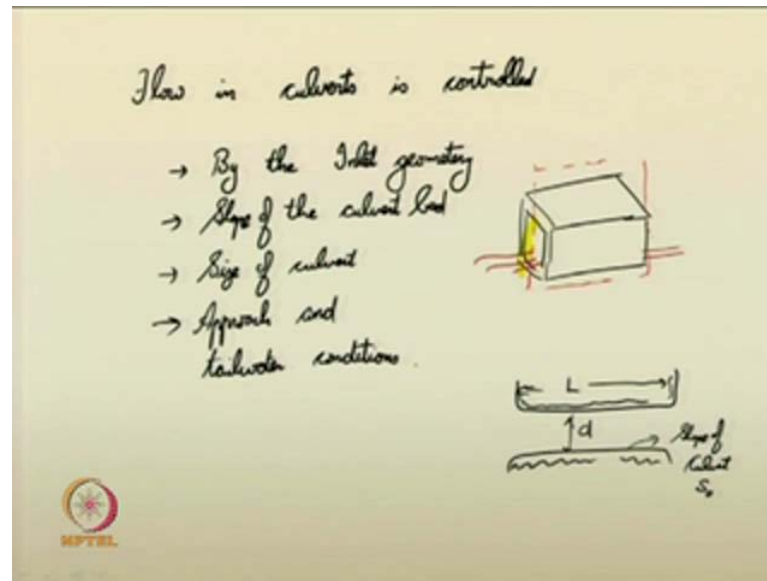 Flow in culverts is controlled
→ By the Inlet geometry
→ Slope of the culvert bed
→ Size of culvert
→ Approach and
tailwater conditions.
L
d
Slope of
culvert
S₀
NPTEL